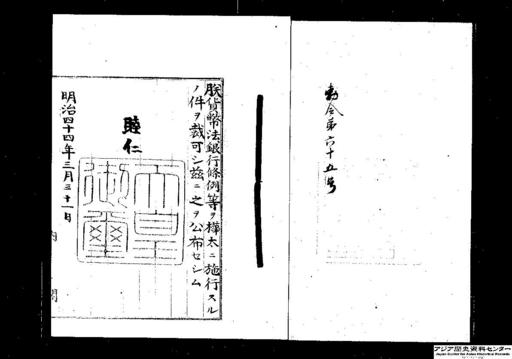 勅令第六十五号
朕貨幣法銀行條例等ヲ樺太ニ施行スル
ノ件ヲ裁可シ茲ニ之ヲ公布セシム
睦仁
天皇御璽
明治四十四年三月三十一日
内 閣
アジア歴史資料センター
Japan Center for Asian Historical Records